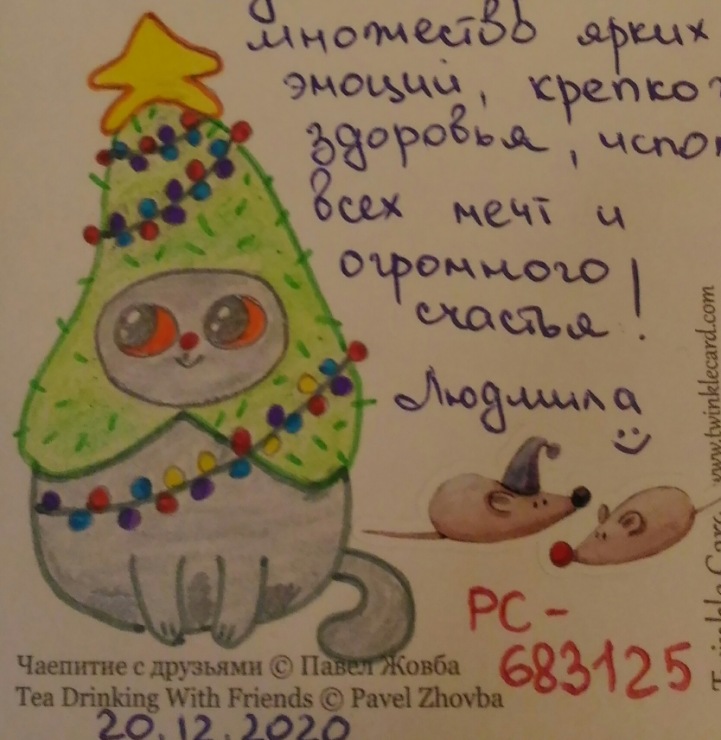 множество ярких
эмоций, крепко
здоровья,
всех мечт и
огромного
счастья!
Людмила
PC-
683125
Чаепитие с друзьями © Павел Жовба
Tea Drinking With Friends © Pavel Zhovba
20.12.2020
www.twinklecard.com